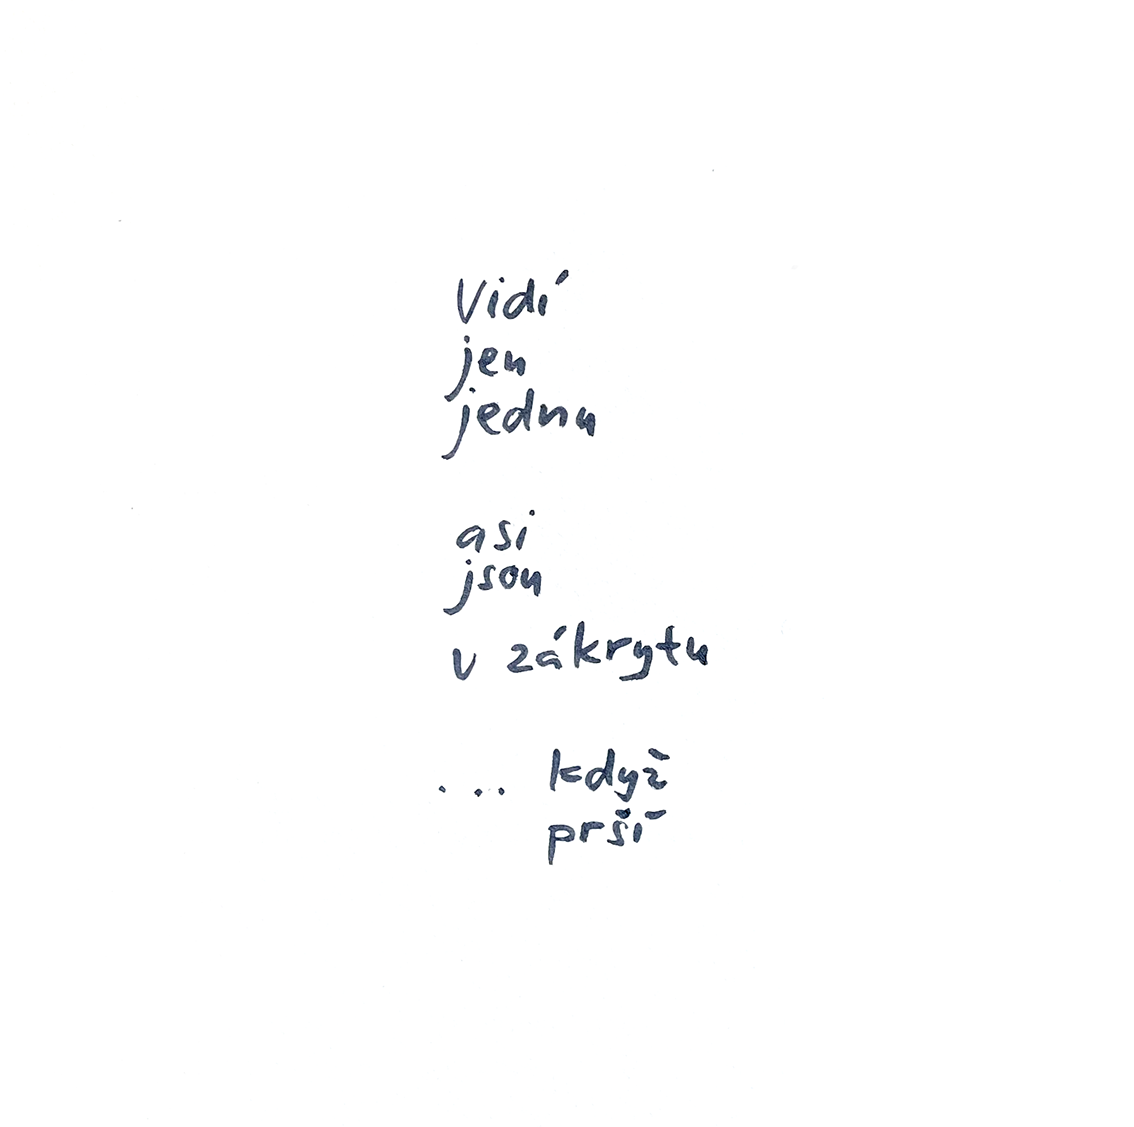 Vidí
jen
jednu
asi
jsou
v zákrytu
... když
prší